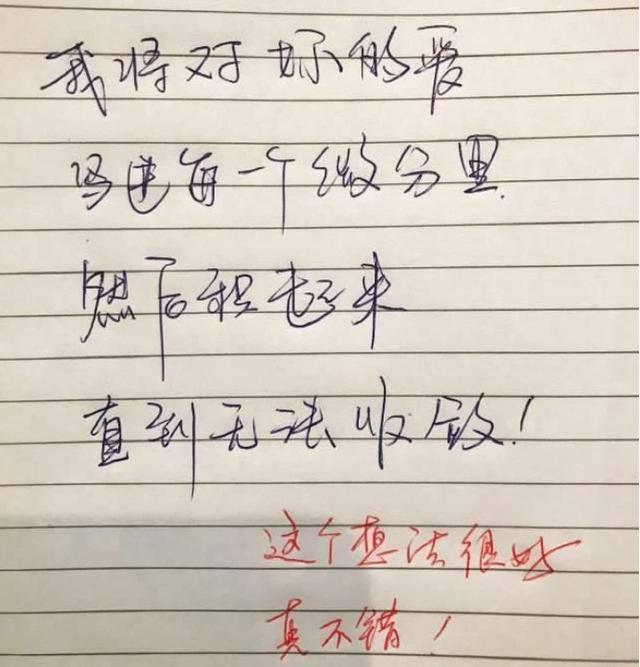 我将对妳的爱
写进每一个微分里
然后积起来
直到无法收敛！
这个想法很好
真不错！